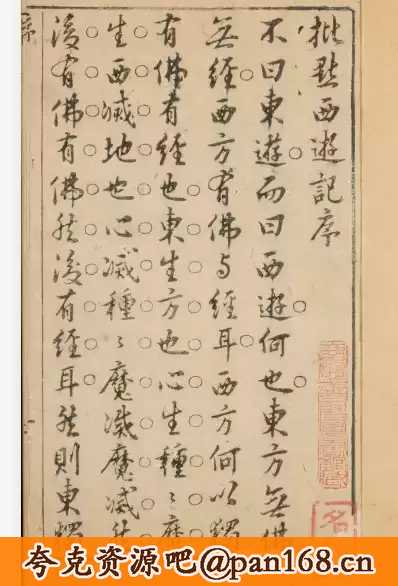 批點西遊記序
不曰東遊而曰西遊何也東方無佛
無經西方有佛與經耳西方何以獨
有佛有經也東生方也心生種〻魔
生西滅地也心滅種〻魔滅魔滅然
後有佛有佛然後有經耳然則東獨
夸克资源吧@pan168.cn